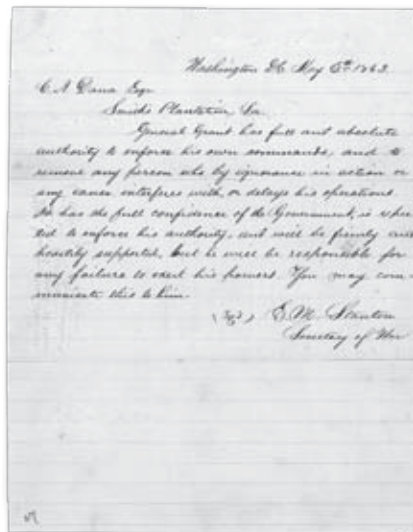 Washington DC May 6th 1863.
C. A. Dana Esqr
Smiths Plantation La.
General Grant has full and absolute
authority to enforce his own commands, and to
remove any person who by ignorance in action or
any cause interferes with or delays his operations
He has the full confidence of the Government, is expec
ted to enforce his authority, and will be firmly and
heartily supported, but he will be responsible for
any failure to exert his powers. You may com
municate this to him.
E. M. Stanton
Secretary of War